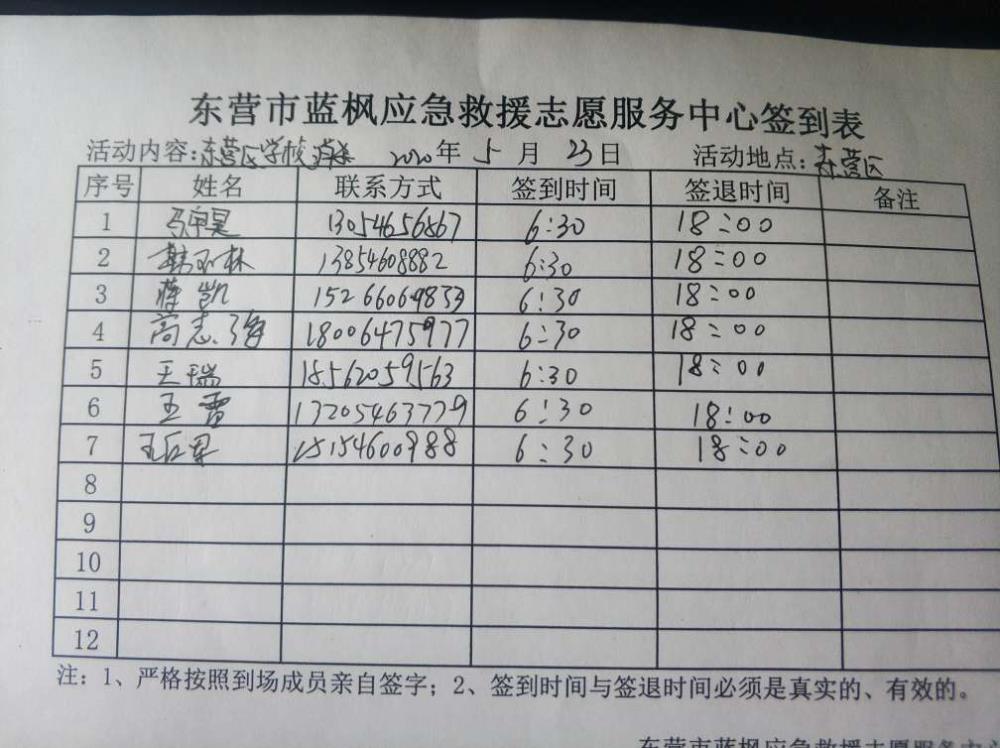 东营市蓝枫应急救援志愿服务中心签到表
活动内容:东营区学校消杀 2020年 5 月 23日 活动地点:东营区
序号 姓名 联系方式 签到时间 签退时间 备注
1 13054656867 6:30 18:00
2 韩玉林 13854608882 6:30 18:00
3 蒋凯 15266069833 6:30 18:00
4 高志强 18006475977 6:30 18:00
5 王瑞 18562059563 6:30 18:00
6 王雷 13205463779 6:30 18:00
7 15154600988 6:30 18:00
8
9
10
11
12
注:1、严格按照到场成员亲自签字;2、签到时间与签退时间必须是真实的、有效的。
东营市蓝枫应急救援志愿服务中心